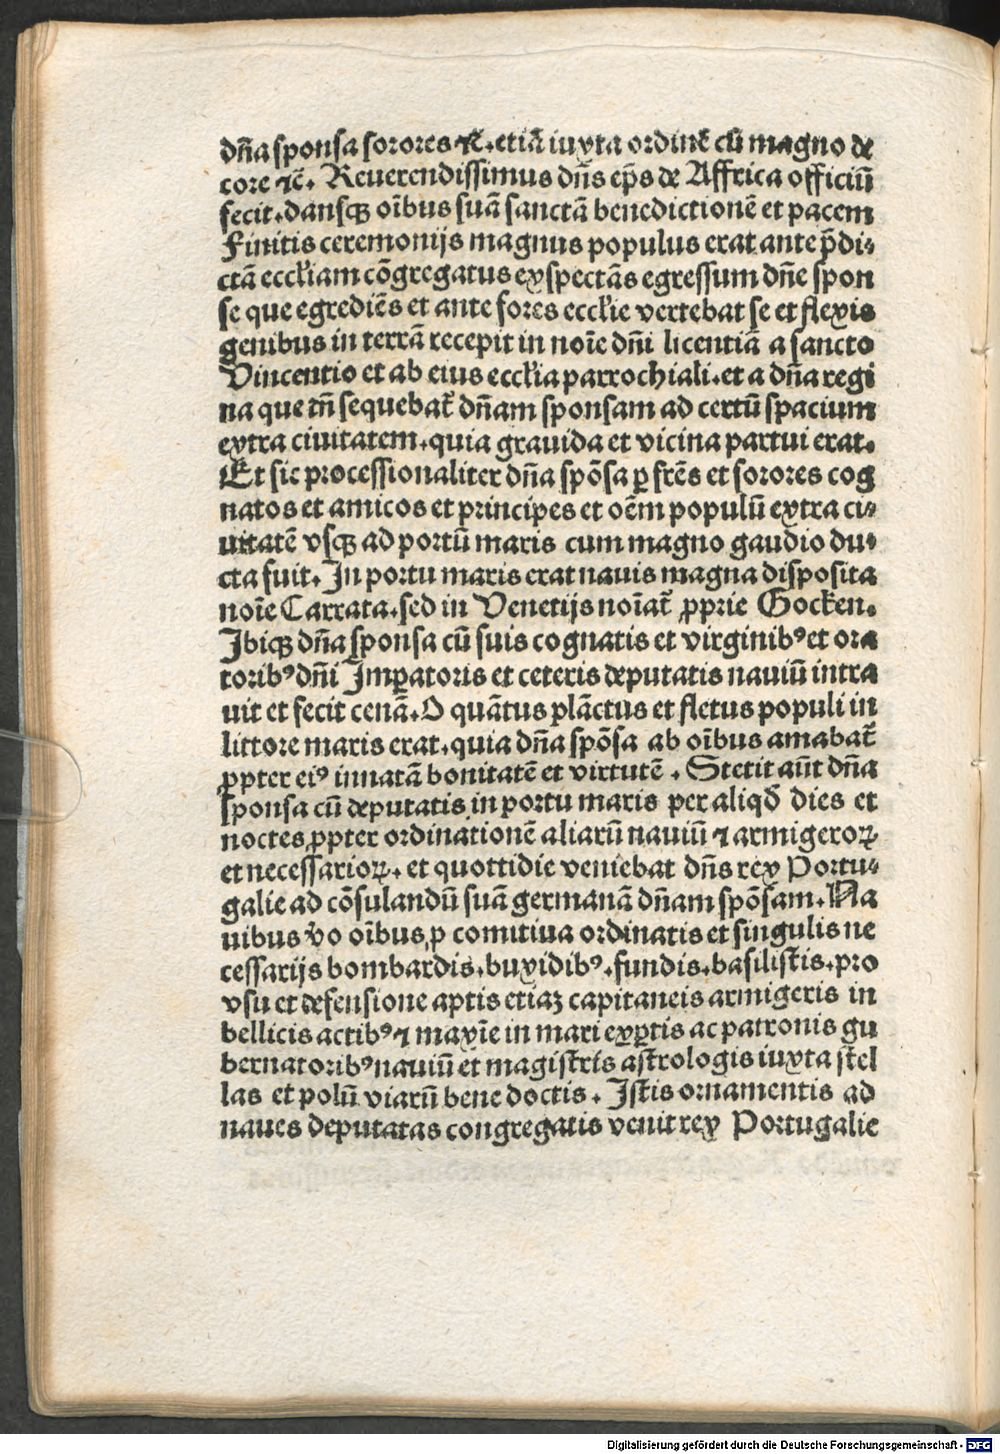 dn̄a sponsa sorores ⁊c̄. etiā iuxta ordinē cū magno de
core ⁊c̄. Reuerendissimus dn̄s ep̄s de Affrica officiū
fecit. dansqꝫ oībus suā sanctā benedictionē et pacem
Finitis ceremonijs magnus populus erat ante p̄di⸗
ctā eccl̄iam cōgregatus exspectās egressum dn̄e spon
se que egrediēs et ante fores eccl̄ie vertebat se et flexis
genibus in terrā recepit in noīe dn̄i licentiā a sancto
Vincentio et ab eius eccl̄ia parrochiali. et a dn̄a regi
na que tn̄ sequebat᷑ dn̄am sponsam ad certū spacium
extra ciuitatem. quia grauida et vicina partui erat.
Et sic processionaliter dn̄a spōsa ꝑ fr̄es et sorores cog
natos et amicos et principes et oēm populū extra ci⸗
uitatē vsqꝫ ad portū maris cum magno gaudio du⸗
cta fuit. In portu maris erat nauis magna disposita
noīe Carrata. sed in Venetijs noīat᷑ ꝓprie Gocken.
Ibiqꝫ dn̄a sponsa cū suis cognatis et virginibꝰ et ora
toribꝰ dn̄i Imꝑatoris et ceteris deputatis nauiū intra
uit et fecit cenā. O quātus plāctus et fletus populi in
littore maris erat. quia dn̄a spōsa ab oībus amabat᷑
ꝓpter eiꝰ innatā bonitatē et virtutē. Stetit aūt dn̄a
sponsa cū deputatis in portu maris per aliqđ dies et
noctes ꝓpter ordinationē aliarū nauiū ⁊ armigeroꝝ
et necessarioꝝ. et quottidie veniebat dn̄s rex Portu⸗
galie ad cōsulandū suā germanā dn̄am spōsam. Na
uibus v̄o oībus ꝓ comitiua ordinatis et singulis ne
cessarijs bombardis. buxidibꝰ. fundis. basilistis. pro
vsu et defensione aptis etiaꝫ capitaneis armigeris in
bellicis actibꝰ ⁊ maxīe in mari exꝑtis ac patronis gu
bernatoribꝰ nauiū et magistris astrologis iuxta stel
las et polū viarū bene doctis. Istis ornamentis ad
naues deputatas congregatis venit rex Portugalie
Digitalisierung gefördert durch die Deutsche Forschungsgemeinschaft - DFG